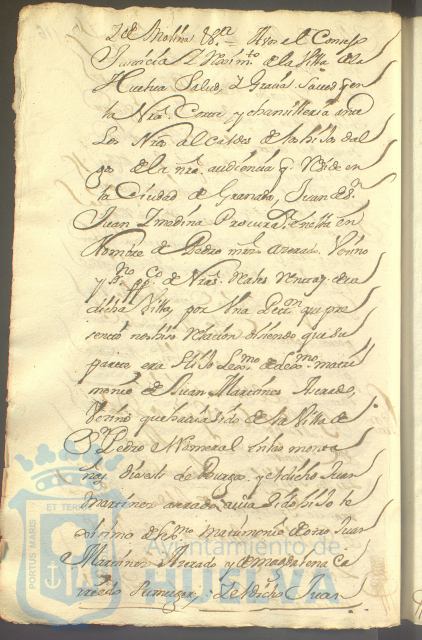 y de Molina &ra = A vos el Conzejo
Justicia y Reximto de la Villa de la
Huelva Salud, y Gracia Saved q̃ en
la Nra Corte, y chanzilleria ante
Los Nros alcaldes de los hijos dal
go de la nra audiencia q̃ Reside en
la Ciudad de Granada, Juan de Sn
Juan y medina Procurador en ella en
Nombre de Pedro mrz azerado Vezino
y de Nras Reales Rentas de esa
dicha Villa, por Una Petizn que pre
sento nos hizo Relacion diziendo que su
parte era hijo Lexmo de Lexmo matri
monio de Juan Martinez Azerado,
Vezino que havia sido de la Villa de
Sn Pedro el Romeral en las monta
ñas Diozesis de Burgos y el dicho Juan
Martinez azerado havia sido hijo le
xitimo de Lexmo matrimonio de otro Juan
Martinez Azerado y de magdalena Ca
rredo su muger, y el dicho Juan
PORTUS MARIS ET TERRÆ
Ayuntamiento de
HUELVA